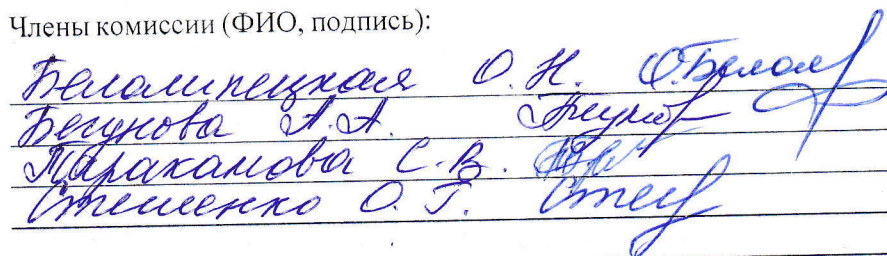 Члены комиссии (ФИО, подпись):
Белолипецкая О.Н. О.Белол
Бегунова А.А.
Тараканова С.В.
Стешенко О.Г. Стеш